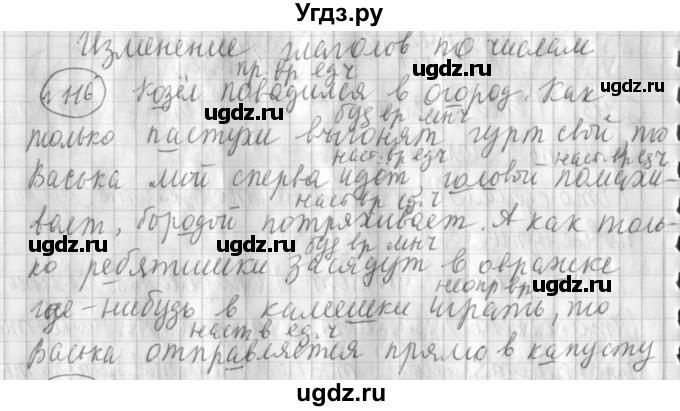 Угдз.ру
Изменение глаголов по числам
пр. вр ед ч
116 Козёл повадился в огород. Как
буд вр мн ч
только пастухи выгонят гурт свой, то
наст. вр ед ч наст. вр ед ч
Васька мой сперва идёт головой помахи-
наст вр ед. ч
вает, бородой потряхивает. А как толь-
буд вр мн ч
ко ребятишки засядут в овражке
неопр вр
где-нибудь в камешки играть, то
наст в ед. ч
Васька отправляется прямо в капусту
ugdz.ru ugdz.ru
ugdz.ru ugdz.ru
ugdz.ru ugdz.ru
ugdz.ru ugdz.ru
ugdz.ru ugdz.ru